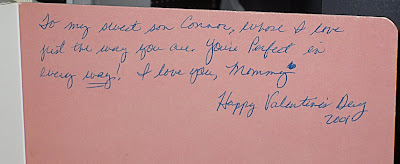 To my sweet son Connor, whose I love
just the way you are. You're Perfect in
every way! I love you, Mommy
Happy Valentine's Day
2001